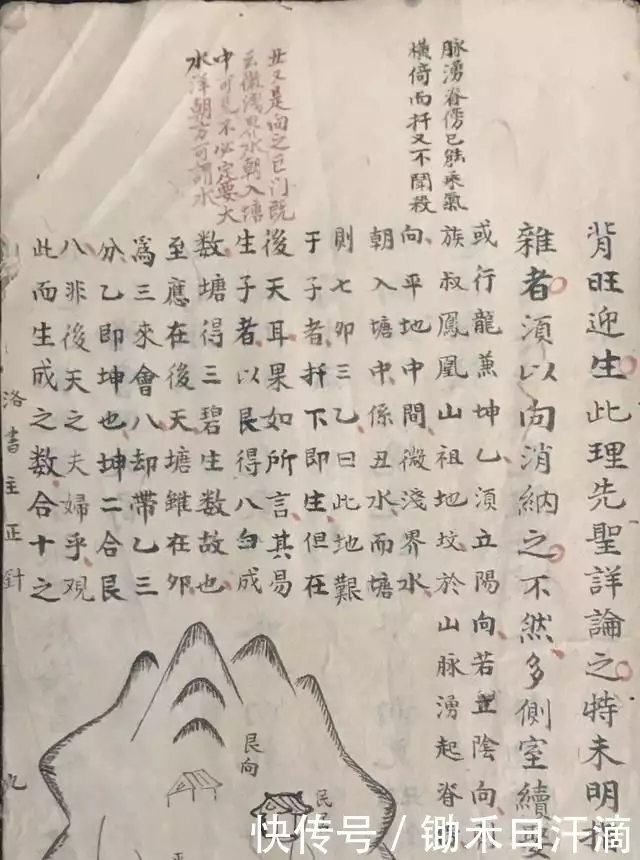 脉湧脊傍已能乘氣
橫倚而扦又不鬭殺
丑又是向之巨门既
云微浅界水朝入塘
中可見不必定要大
水洋朝方可謂水
背旺迎生此理先聖詳論之特未明指
雜者須以向消納之不然多側室續
或行龍兼坤乙須立陽向若立陰向
族叔鳳凰山祖地坟於山脉湧起脊
向平地中間微浅界水
朝入塘中係丑水而塘
則七卯三乙曰此地艱
于子者扦下即生但在
後天耳果如所言其易
生子者以艮得八白成
数塘得三碧生数故也
至應在後天塘雖在卯
為三來會八却帶乙三
分乙即坤也坤二合艮
八非後天之夫婦乎观
此而生成之数合十之
洛書主正針
艮向
快传号/锄禾日汗滴